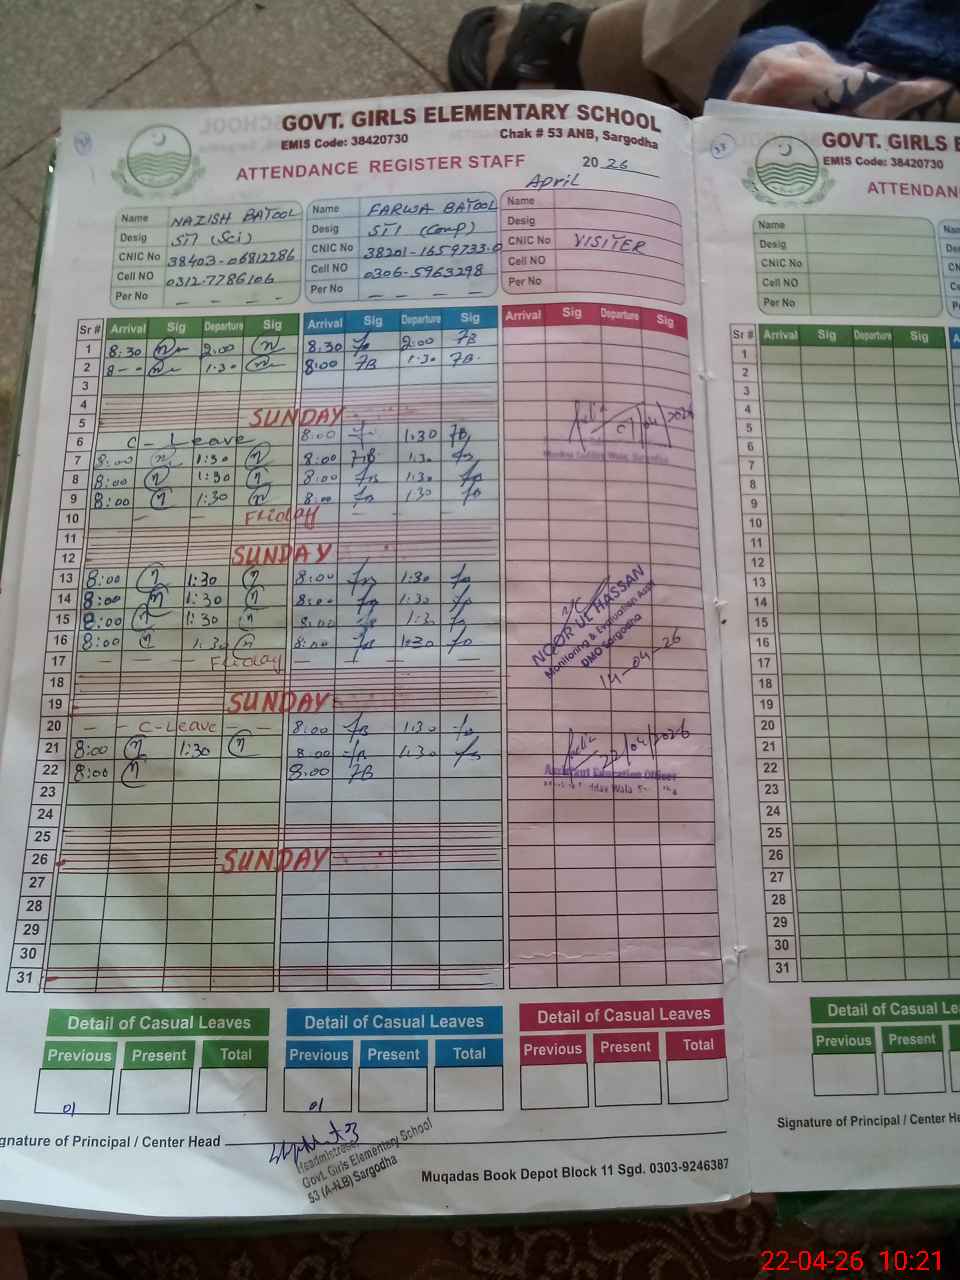 GOVT. GIRLS ELEMENTARY SCHOOL
EMIS Code: 38420730 Chak # 53 ANB, Sargodha
ATTENDANCE REGISTER STAFF 20 26
April
Name NAZISH BATOOL
Desig STI (Sci)
CNIC No 38403-06812286
Cell NO 0312-7786106
Per No — — —
Name FARWA BATOOL
Desig STI (Comp)
CNIC No 38201-1659733-0
Cell NO 0306-5963298
Per No — — —
Name
Desig
CNIC No VISITER
Cell NO
Per No
Sr # Arrival Sig Departure Sig Arrival Sig Departure Sig Arrival Sig Departure Sig
1 8:30 2:00 8:30 2:00 FB
2 8-- 1:30 8:00 FB 1:30 FB
3
4
5 SUNDAY
6 C-Leave 8:00 1:30 FB
7 8:00 1:30 8:00 FB 1:30
8 8:00 1:30 8:00 1:30
9 8:00 1:30 8:00 1:30
10 — — Friday — — —
11
12 SUNDAY
13 8:00 1:30 8:00 1:30
14 8:00 1:30 8:00 1:30
15 8:00 1:30 8:00 1:30
16 8:00 1:30 8:00 1:30
17 — — — Friday — — — —
18
19 SUNDAY
20 — — C-Leave — — 8:00 FB 1:30
21 8:00 1:30 8:00 1:30
22 8:00 8:00 FB
23
24
25
26 SUNDAY
27
28
29
30
31
07/04/2026
NOOR UL HASSAN
Monitoring & Evaluation Asstt
DMO Sargodha
14-04-26
22/04/2026
Assistant Education Officer
Detail of Casual Leaves Detail of Casual Leaves Detail of Casual Leaves
Previous Present Total Previous Present Total Previous Present Total
01 01
gnature of Principal / Center Head
Headmistress
Govt. Girls Elementary School
53 (A-NB) Sargodha
Muqadas Book Depot Block 11 Sgd. 0303-9246387
GOVT. GIRLS E
EMIS Code: 38420730
ATTENDAN
Name
Desig
CNIC No
Cell NO
Per No
Sr # Arrival Sig Departure Sig
1
2
3
4
5
6
7
8
9
10
11
12
13
14
15
16
17
18
19
20
21
22
23
24
25
26
27
28
29
30
31
Detail of Casual Le
Previous Present
Signature of Principal / Center He
22-04-26 10:21